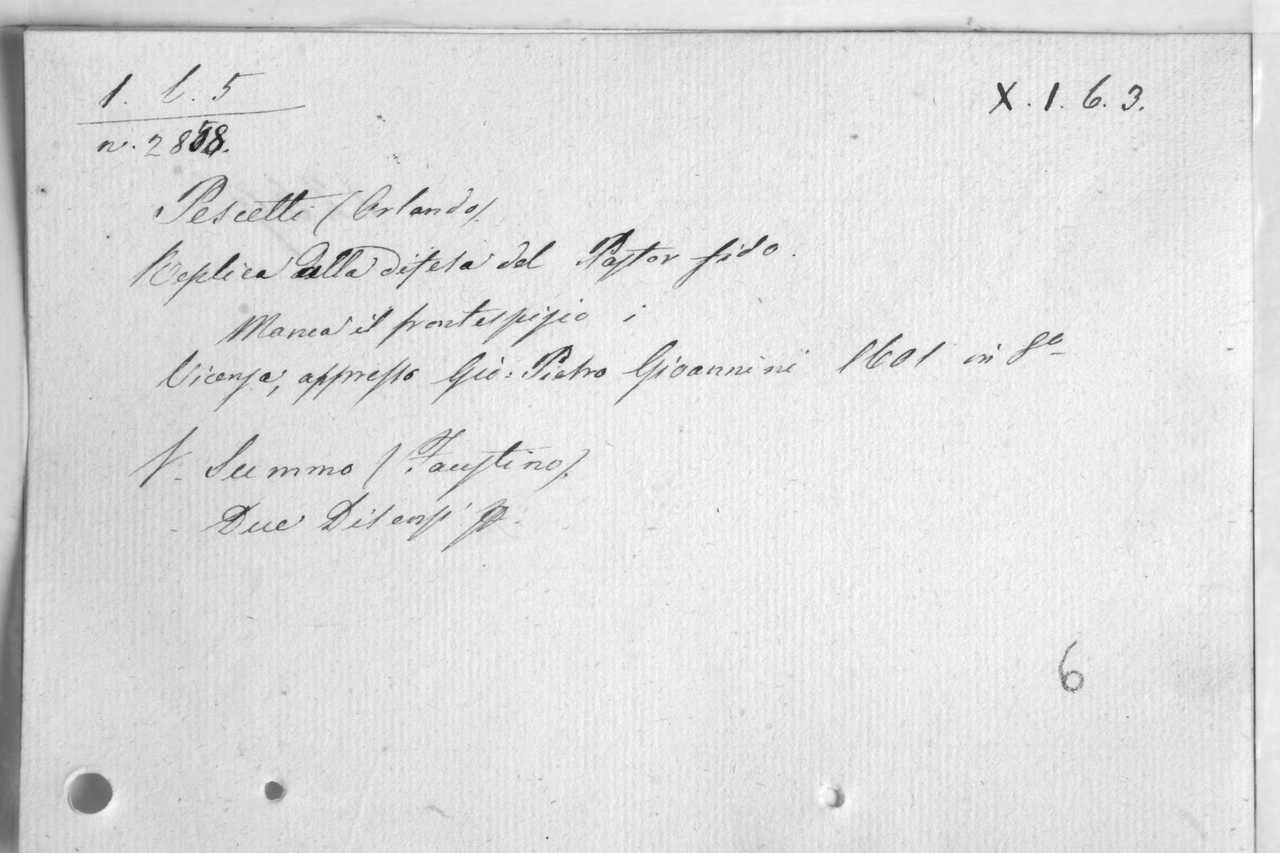 1. b. 5
X. 1. 6. 3.
n. 2858.
Pescetti (Orlando).
Replica alla difesa del Pastor fido.
Manca il frontespizio
Vicenza, appresso Gio: Pietro Gioannini 1601 in 8º
V. Summo (Faustino).
Due Discorsi
6